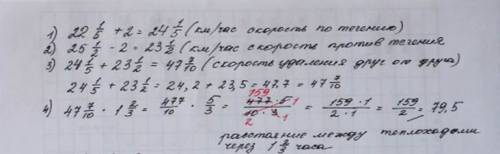 1) 22 1/5 + 2 = 24 1/5 (км/час скорость по течению)
2) 25 1/2 - 2 = 23 1/2 (км/час скорость против течения
3) 24 1/5 + 23 1/2 = 47 7/10 (скорость удаления друг от друга)
24 1/5 + 23 1/2 = 24,2 + 23,5 = 47.7 = 47 7/10
4) 47 7/10 · 1 2/3 = 477/10 · 5/3 = 159 477 · 5 1 / 2 10 · 3 1 = 159 · 1 / 2 · 1 = 159/2 = 79,5
расстояние между теплоходами
через 1 2/3 часа